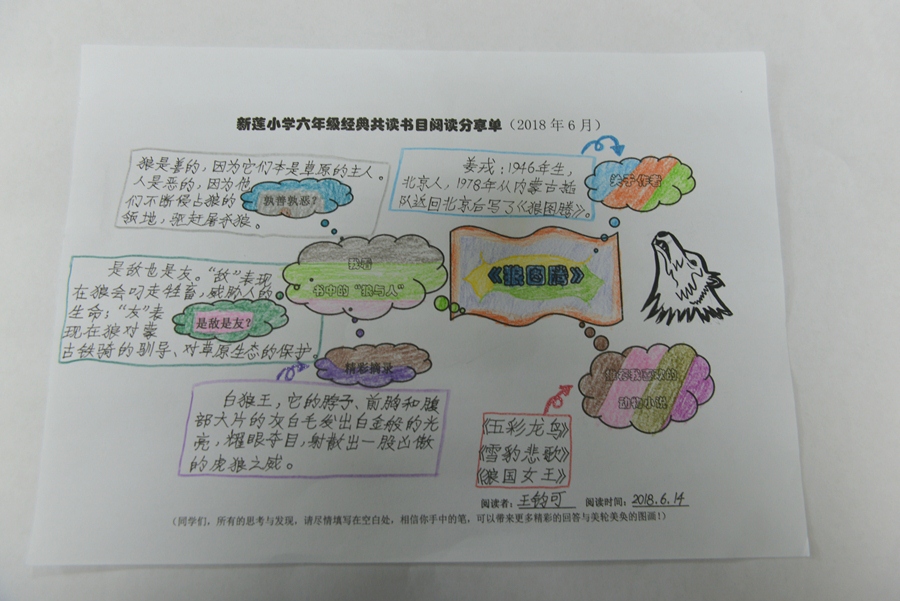 新莲小学六年级经典共读书目阅读分享单（2018年6月）
狼是善的，因为它们本是草原的主人。
人是恶的，因为他
们不断侵占狼的
领地，驱赶屠杀狼。
孰善孰恶？
姜戎：1946年生，
北京人，1978年从内蒙古插
队返回北京后写了《狼图腾》。
关于作者
我看
书中的“狼与人”
《狼图腾》
是敌也是友。“敌”表现
在狼会叼走牲畜，威胁人的
生命；“友”表
现在狼对蒙
古铁骑的驯导、对草原生态的保护。
是敌是友？
精彩摘录
白狼王，它的脖子、前胸和腹
部大片的灰白毛发出白金般的光
亮，耀眼夺目，射散出一股凶傲
的虎狼之威。
推荐我喜欢的
动物小说
《五彩龙鸟》
《雪豹悲歌》
《狼国女王》
阅读者：王钧可 阅读时间：2018.6.14
（同学们，所有的思考与发现，请尽情填写在空白处，相信你手中的笔，可以带来更多精彩的回答与美轮美奂的图画！）